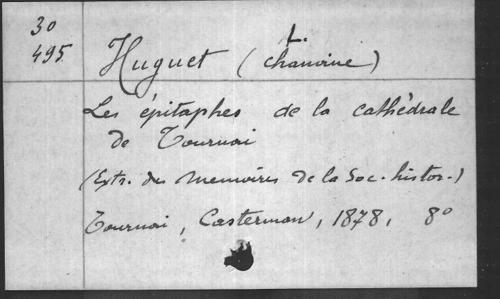 30
495
L.
Huguet (chanoine)
Les épitaphes de la cathédrale
de Tournai
(Extr. des Memoires de la Soc. histor.)
Tournai, Casterman, 1878, 8°